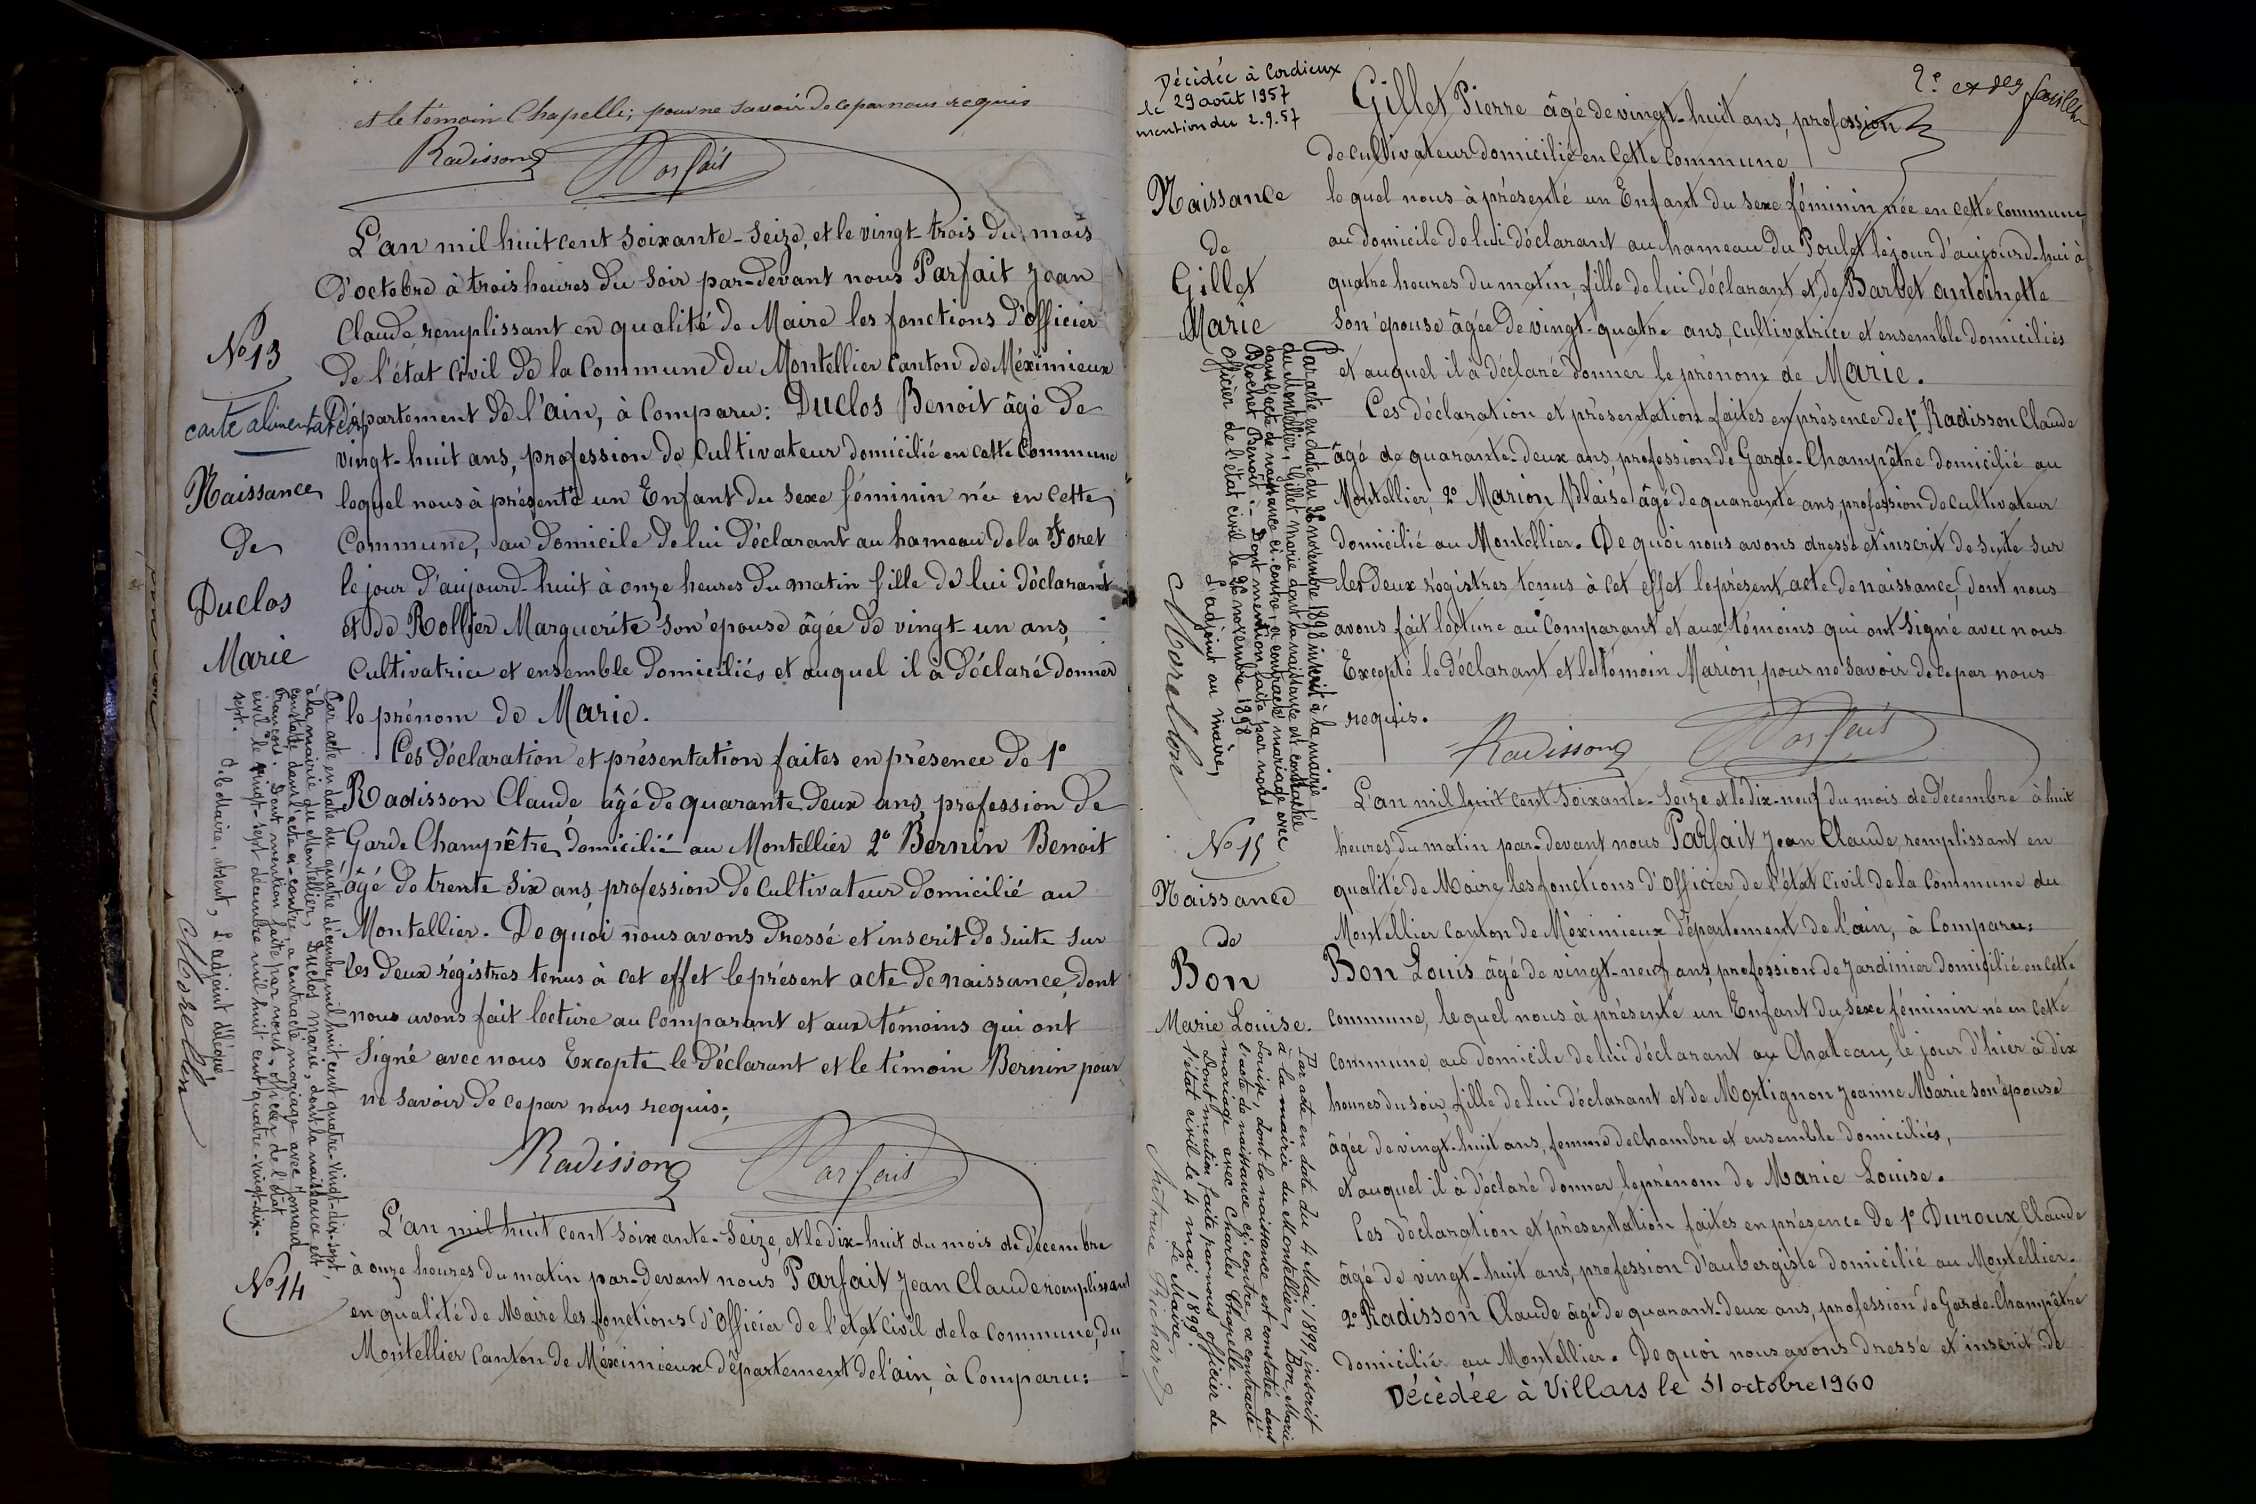 et le témoin Chapelle; pour ne savoir de ce par nous requis
Radisson Parfait
L'an mil huit cent soixante-seize, et le vingt-trois du mois
d'octobre à trois heures du soir par-devant nous Parfait Jean
Claude, remplissant en qualité de Maire les fonctions d'officier
de l'état civil de la Commune du Montellier Canton de Méximieux
Département de l'ain, à Comparu: Duclos Benoit âgé de
vingt-huit ans, profession de Cultivateur domicilié en cette Commune
lequel nous à présenté un Enfant du sexe féminin née en cette
Commune, au domicile de lui déclarant au hameau de la Foret
le jour d'aujourd-huit à onze heures du matin fille de lui déclarant
et de Rollier Marguerite son épouse âgée de vingt-un ans,
Cultivatrice et ensemble domiciliés et auquel il à déclaré donner
le prénom de Marie.
Ces déclaration et présentation faites en présence de 1°
Radisson Claude âgé de quarante deux ans, profession de
Garde Champêtre domicilié au Montellier 2° Bernin Benoit
âgé de trente six ans, profession de cultivateur domicilié au
Montellier. De quoi nous avons dressé et inscrit de suite sur
les deux régistres tenus à cet effet le présent acte de naissance, dont
nous avons fait lecture au Comparant et aux témoins qui ont
Signé avec nous Excepté le déclarant et le témoin Bernin pour
ne savoir de ce par nous requis;
Radisson Parfait
L'an mil huit cent soixante-seize, et le dix-huit du mois de décembre
à onze heures du matin par-devant nous Parfait Jean Claude remplissant
en qualité de Maire les fonctions d'Officier de l'état civil de la Commune, du
Montellier Canton de Méximieux département de l'ain, à Comparu:
N° 13
carte alimentation
Naissance
de
Duclos
Marie
Par acte en date du quatre décembre mil huit cent quatre-vingt-dix-sept,
à la mairie du Montellier, Duclos Marie, dont la naissance est
constatée dans l'acte ci-contre, a contracté mariage avec Jomard
François. Dont mention faite par nous, officier de l'état
civil le vingt-sept décembre mil huit cent quatre-vingt-dix-
sept.
Le Maire, absent, L'adjoint délégué,
Morellon
N° 14
Décédée à Cordieux
le 29 août 1957
mention du 2.9.57
2e et der feuillet
Gillet Pierre âgé de vingt-huit ans, profession
de cultivateur domicilié en cette commune
Naissance
de
Gillet
Marie
lequel nous à présenté un Enfant du sexe féminin née en cette commune
au domicile de lui déclarant au hameau du Poulet le jour d'aujourd-hui à
quatre heures du matin, fille de lui déclarant et de Barbet antoinette
son épouse âgée de vingt-quatre ans, cultivatrice et ensemble domiciliés
et auquel il à déclaré donner le prénom de Marie.
Ces déclaration et présentation faites en présence de 1° Radisson Claude
âgé de quarante-deux ans, profession de Garde-Champêtre domicilié au
Montellier, 2° Marion Blaise âgé de quarante ans, profession de cultivateur
domicilié au Montellier. De quoi nous avons dressé et inscrit de suite sur
les deux régistres tenus à cet effet le présent acte de naissance, dont nous
avons fait lecture au Comparant et aux témoins qui ont signé avec nous
Excepté le déclarant et le témoin Marion, pour ne savoir de ce par nous
requis.
Radisson Parfait
Par acte en date du novembre 1898 inscrit à la mairie
du Montellier, Gillet Marie dont la naissance est constatée
dans l'acte de naissance ci-contre, a contracté mariage avec
Blochet Benoit. Dont mention faite par nous
officier de l'état civil le novembre 1898
L'adjoint au maire,
Morellon
N° 15
Naissance
de
Bon
Marie Louise.
L'an mil huit cent soixante-seize et le dix-neuf du mois de décembre à huit
heures du matin par-devant nous Parfait Jean Claude, remplissant en
qualité de Maire, les fonctions d'Officier de l'état civil de la Commune du
Montellier canton de Méximieux département de l'ain, à Comparu:
Bon Louis âgé de vingt-neuf ans, profession de Jardinier domicilié en cette
commune, lequel nous à présenté un Enfant du sexe féminin né en cette
commune au domicile de lui déclarant au Chateau, le jour d'hier à dix
heures du soir, fille de lui déclarant et de Mortignon Jeanne Marie son épouse
âgée de vingt-huit ans, femme de chambre et ensemble domiciliés,
et auquel il à déclaré donner le prénom de Marie Louise.
Ces déclaration et présentation faites en présence de 1° Duroux Claude
âgé de vingt-huit ans, profession d'aubergiste domicilié au Montellier.
2° Radisson Claude âgé de quarant-deux ans, profession de Garde-Champêtre
domicilié au Montellier. De quoi nous avons dressé et inscrit de
Décédée à Villars le 31 octobre 1960
Par acte en date du 4 Mai 1899, inscrit
à la mairie du Montellier, Bon Marie
Louise, dont la naissance est constatée dans
l'acte de naissance ci-contre, a contracté
mariage avec Charles Chapelle.
Dont mention faite par nous officier de
l'état civil le 4 mai 1899.
Le Maire,
Richard